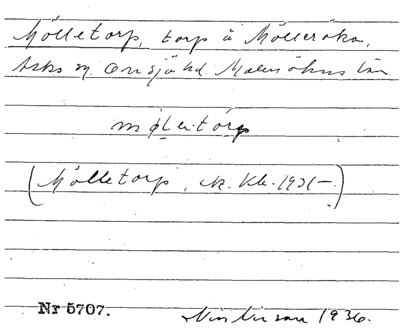 Mölletorp, torp å Mölleröka,
Asks sn Onsjö hd. Malmöhus län
møletǫrp
(Mölletorp, ek. kb. 1931–)
Nr 5707. 1936.